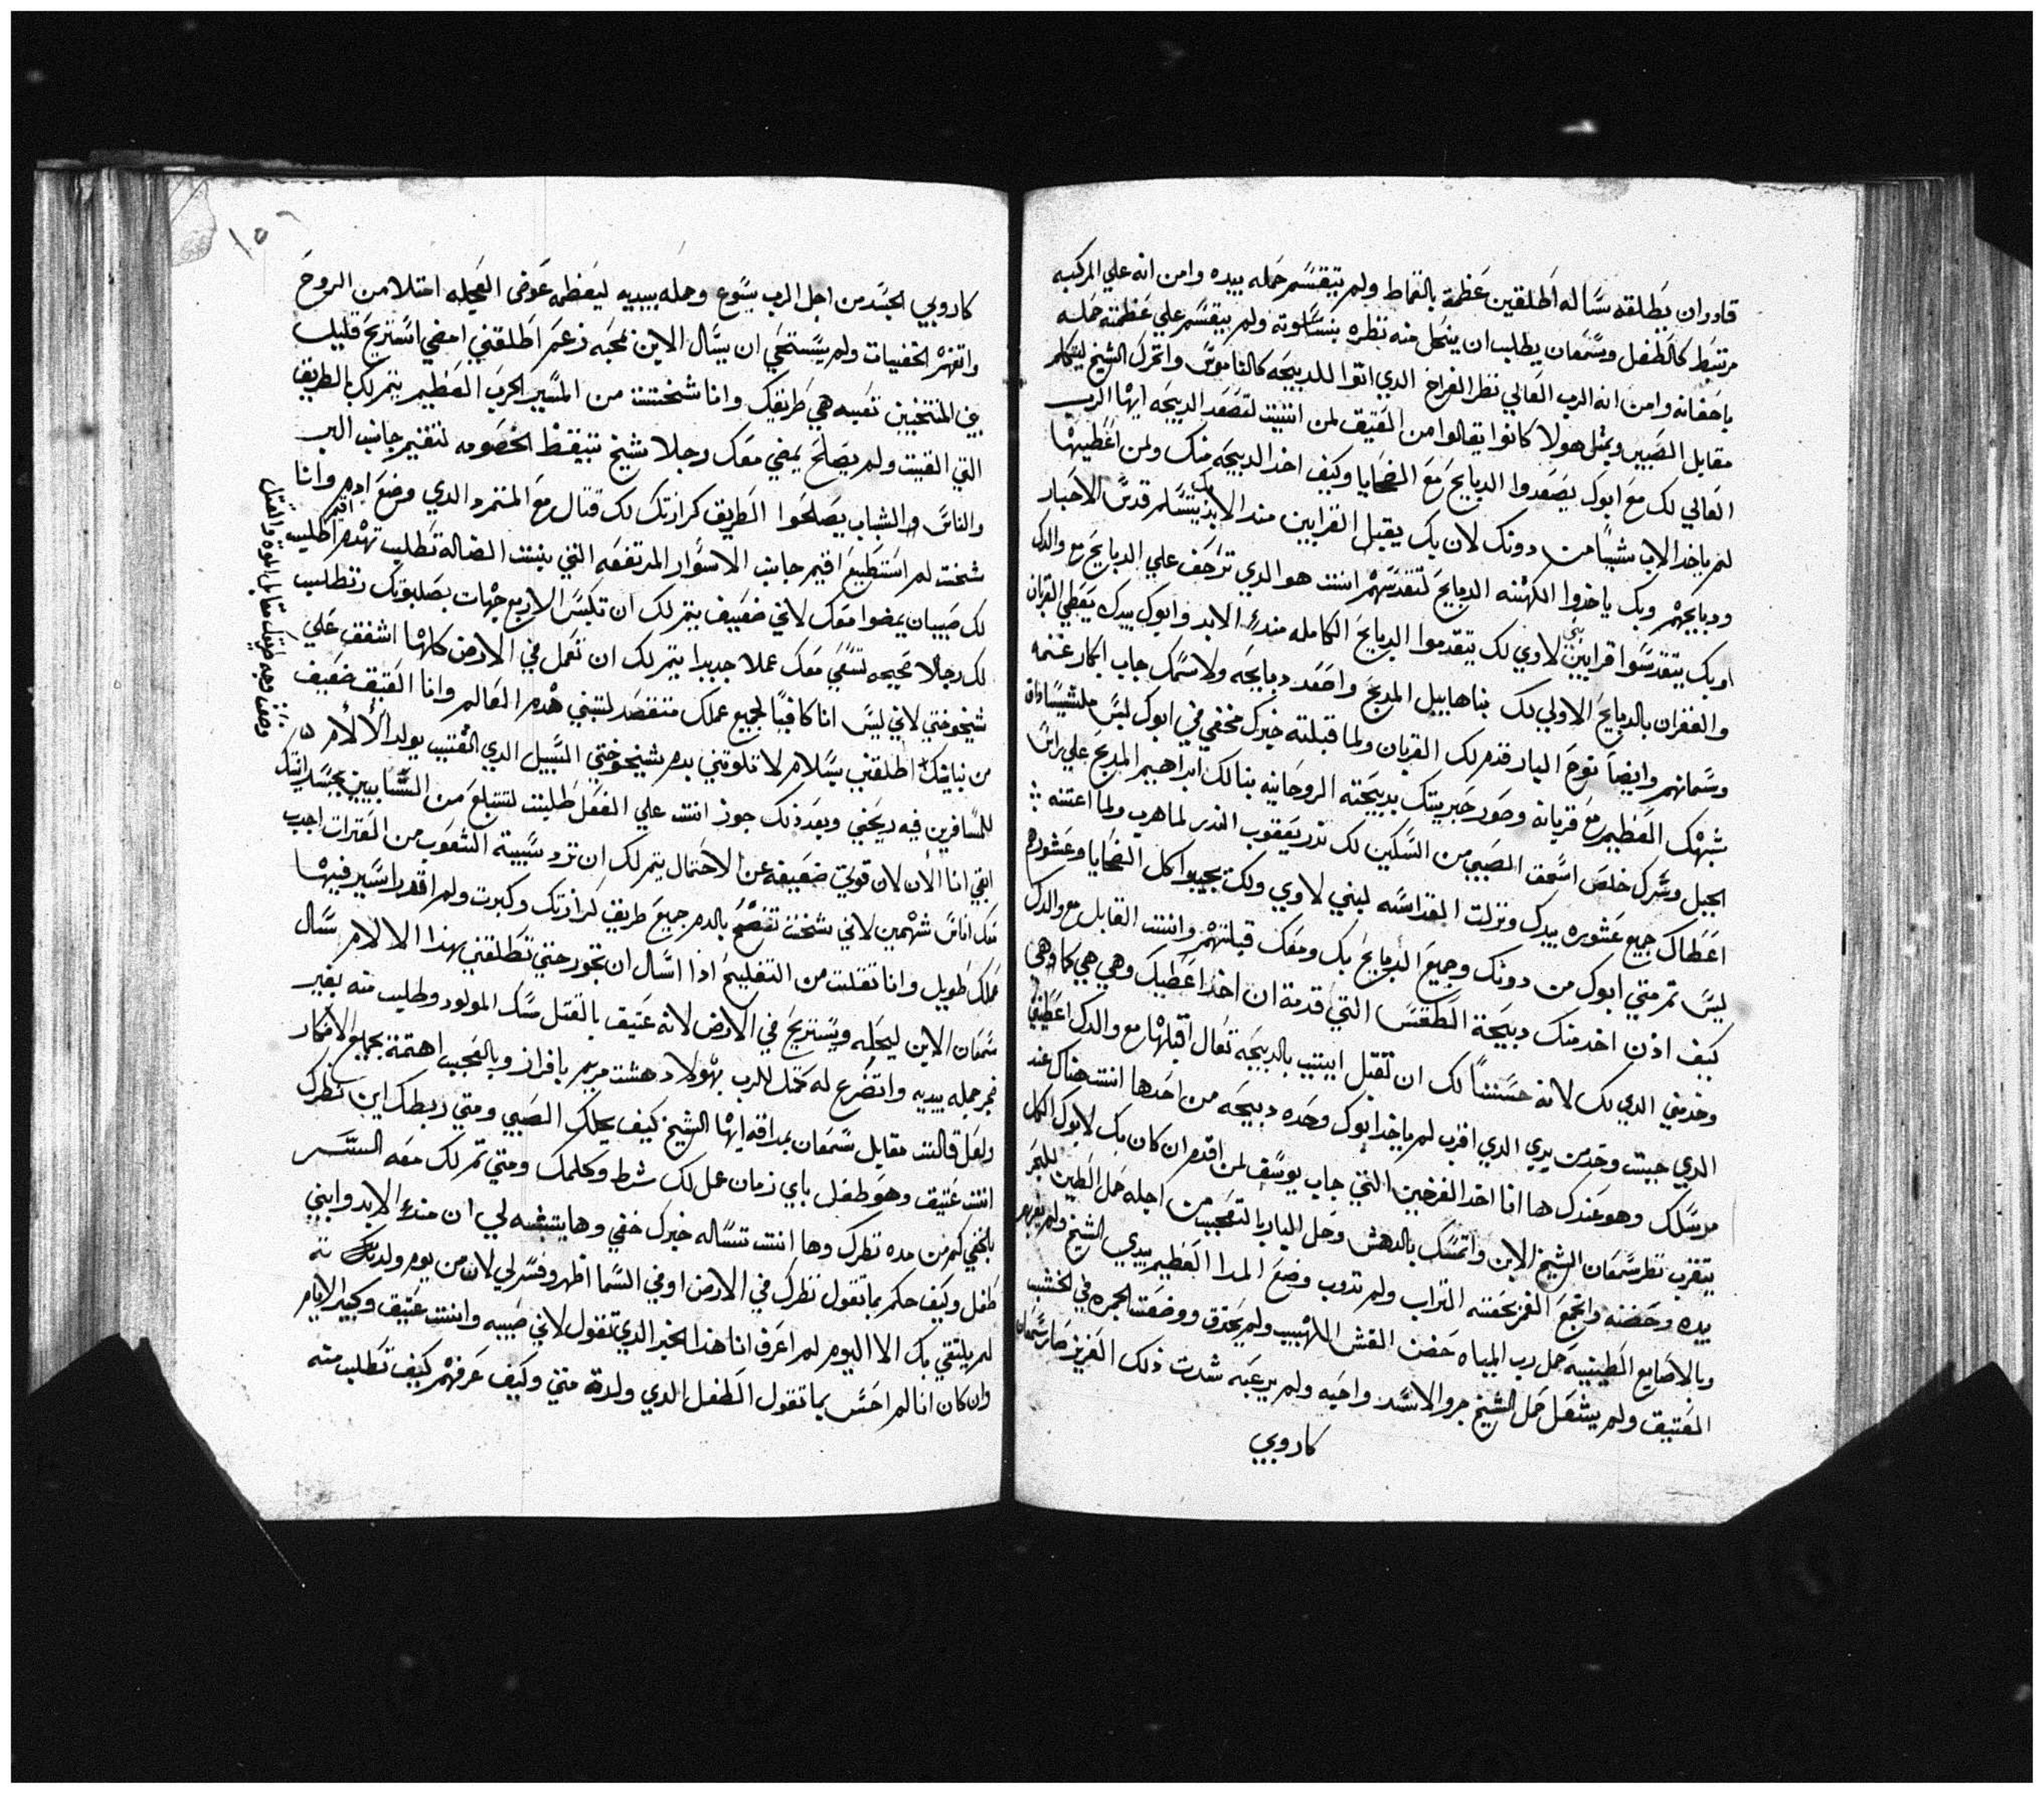 قادر وان يطلقه ساله اطلقين عظمة بالقماط ولم يتقسم حمله بيده وامن انه علي المركبه
مرتبط كالطفل وسمعان يطلب ان ينحل منه نظره بتساوته ولم يتقسم علي عظمته حمله
باحضانه وامن انه الرب العالي نظر الفراخ الدي اتوا للدبيحه كالناموس واتحرك الشيخ ليتكلم
مقابل الصبي وبمثل هولا كانوا يقالوا من العتيق لمن اتيت لتصعد الدبيحه ايها الرب
العالي لك مع ابوك يصعدوا الدبايح مع الضحايا وكيف اخد الدبيحه منك ولمن اعطيها
لم ياخد الاب شيا من دونك لان بك يقبل القرابين مند الابد بك يتسلم قدس الاحبار
ودبايحهم وبك ياخدوا الكهنه الدبايح لتقدسهم انت هو الدي تزحف علي الدبايح مع والدك
او بك يتقدسوا قرابين بني لاوي لك يتقدموا الدبايح الكامله مند الابد وابوك بيدك يعطي القربان
والغفران بالدبايح الاولي لك بنا هابيل المدبح واصعد دبايحه ولاسمك جاب ابكار غنمه
وسمانهم وايضا نوح البار قدم لك القربان ولما قبلته خبرك مخفي في ابوك ليس
شبهك العظيم مع قربانه وصور حبريتك بدبيحته الروحانيه بنا لك ابراهيم المدبح علي راس
الجبل وسرك خلص اسحق الصبي من السكين لك ندر يعقوب الندر لما هرب ولما اعتنه
اعطاك جميع عشوره بيدك ونزلت القداسه لبني لاوي ولك يجيبوا كل الضحايا وعشورهم
ليس تم متي ابوك من دونك وجميع الدبايح بك ومعك قبلتهم وانت القابل مع والدك
كيف ادن اخد منك دبيحة الطقس التي قدمة ان اخد اعطيك وهي هي كما وهي
وخدمني الدي لك لانه حسنا لك ان تقبل ابيت بالدبيحه تعال اقبلها مع والدك اعطيني
الدي جبت وخد من يدي الدي اقرب لم ياخد ابوك وحده دبيحه من احدها انت هناك عند
مرسلك وهو عندك ها انا اخد الفرخين التي جاب يوسف لمن اقدم ان كان بك لابوك الكل
يتقرب نظر سمعان الشيخ الابن واتمسك بالدهش وحل البار بالتعجب من اجله حمل الطين للبحر
بيده وحضنه واتجمع الغمر بحفنته التراب ولم تدوب وضع المدا العظيم بيدي الشيخ ولم يغرم
وبالاصابع الطينيه حمل رب المياه حضن القش اللهيب ولم يحترق ووضعت الجمره في الخشب
العتيق ولم يشعل حمل الشيخ جرو الاسد واحبه ولم يرعبه شدت ذلك العزيز صار سمعان
كاروبي
١٥
كاروبي الجسد من اجل الرب يسوع وحمله بيديه ليعظمه عوض العجله امتلا من الروح
واتهز الخفيات ولم يستحي ان يسال الابن لمحبه زعم اطلقني امضي استريح قليل
بين المنتخبين تعيبه هي طريقك وانا شخت من المسير الحرب العظيم يتم لك بالطريق
التي القيت ولم يصلح يمضي معك رجلا شيخ تتيقظ الخصومه لتقيم جانب البر
والناس والشباب يصلحوا الطريق كرازتك لك قتال مع المتمرد الدي وضع ادم وانا
شخت لم استطيع اقيم جانب الاسوار المرتفعه التي بنيت الضاله تطلب تهدم اطليب
لك صبيان يمضوا معك لاني ضعيف يتم لك ان تكسر الاربع جهات بصلبوتك وتطليب
لك رجالا صحيحه لتسعي معك عملا جديدا يتم لك ان تعمل في الارض كلها اشفق علي
شيخوختي لاني ليس انا كافيا لجميع عملك متقصد لتبني هدم العالم وانا العتيق ضعيف
من نيابتك اطلقني بسلام لا تلوثني بدم شيخوختي السبيل الدي القتيب يولد الألام
للمسافرين فيه ريحني وبعد ذلك جوز انت علي الفعل طلبت لتتبلع من الشابين بجسد ابنك
ابقي انا الأن لان قوتي ضعيفه عن الاحتمال يتم لك ان ترد سبية الشعوب من العترات اجلب
معك اناس شهمين لاني شخت تفضح بالدم جميع طريق كرازتك وكبرت ولم اقدر اسير فيها
عملك طويل وانا تقلت من التفليح اذا اسال ان تجور حتي تطلقني بهذا الالام سال
سمعان الابن ليحله ويستريح في الارض لانه عتيق بالقتل مسك المولود وطليب منه بغير
فجر حمله بيديه واتضرع له كمثل للرب بهولا دهشت مريم بافراز وبالعجب اهتمة بجميع الافكار
ولعل قالت مقابل سمعان بمداقه ايها الشيخ كيف يحلك الصبي ومتي ربطك اين نظرك
انت عتيق وهو طفل باي زمان عمل لك شرط وكلمك ومتي تم لك معه السر
بالخفي كم من مده نظرك وها انت تساله خبرك خفي وها يتبغيه لي ان مند الابد وابني
طفل وكيف حكم بما تقول نظرك في الارض او في السما اظهر وفسر لي لان من يوم ولدتك
لم يلتقي بك الا اليوم لم اعرف انا هذا الخبر الدي تقول لاني صبيه وانت عتيق وكبير الايام
وان كان انا لم احس بما تقول الطفل الدي ولدة مني وكيف عرفهم كيف تطلب منه